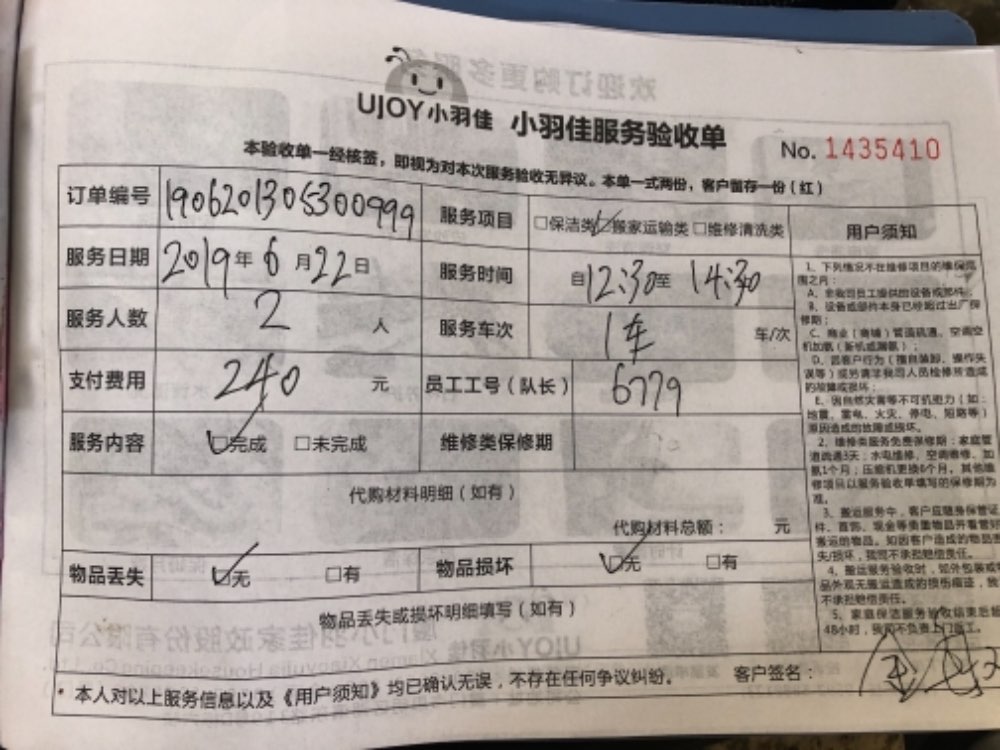 UJOY小羽佳 小羽佳服务验收单
No. 1435410
本验收单一经核签，即视为对本次服务验收无异议。本单一式两份，客户留存一份（红）
订单编号 1906201305300999 服务项目 □保洁类 ☑搬家运输类 □维修清洗类
服务日期 2019年6月22日 服务时间 自12:30至 14:30
服务人数 2 人 服务车次 1车 车/次
支付费用 240 元 员工工号（队长） 6779
服务内容 ☑完成 □未完成 维修类保修期
代购材料明细（如有）
代购材料总额： 元
物品丢失 ☑无 □有 物品损坏 ☑无 □有
物品丢失或损坏明细填写（如有）
* 本人对以上服务信息以及《用户须知》均已确认无误，不存在任何争议纠纷。 客户签名：
用户须知
1、下列情况不在维修项目的维保范
围之内：
A、非我司员工提供的设备或部件；
B、设备或部件本身已经超过出厂保
修期；
C、商业（商铺）管道疏通、空调空
机加氨（新机或漏氨）；
D、因客户行为（擅自装卸、操作失
误等）或另请非我司人员检修所造成
的故障或损坏；
E、因自然灾害等不可抗拒力（如：
地震、雷电、火灾、停电、短路等）
原因造成的故障或损坏。
2、维修类服务免费保修期：家庭管
道疏通3天；水电维修、空调维修、加
氨1个月；压缩机更换6个月。其他维
修项目以服务验收单填写的保修期为
准。
3、搬运服务中，客户应随身保管证
件、首饰、现金等贵重物品并看管好
搬运的物品。如因客户造成的物品丢
失/损坏，我司不承担赔偿责任。
4、搬运服务验收时，如外包装或
品外观无搬运造成的损伤痕迹，我
不承担赔偿责任。
5、家庭保洁服务验收结束后超
48小时，我司不负责上门返工。